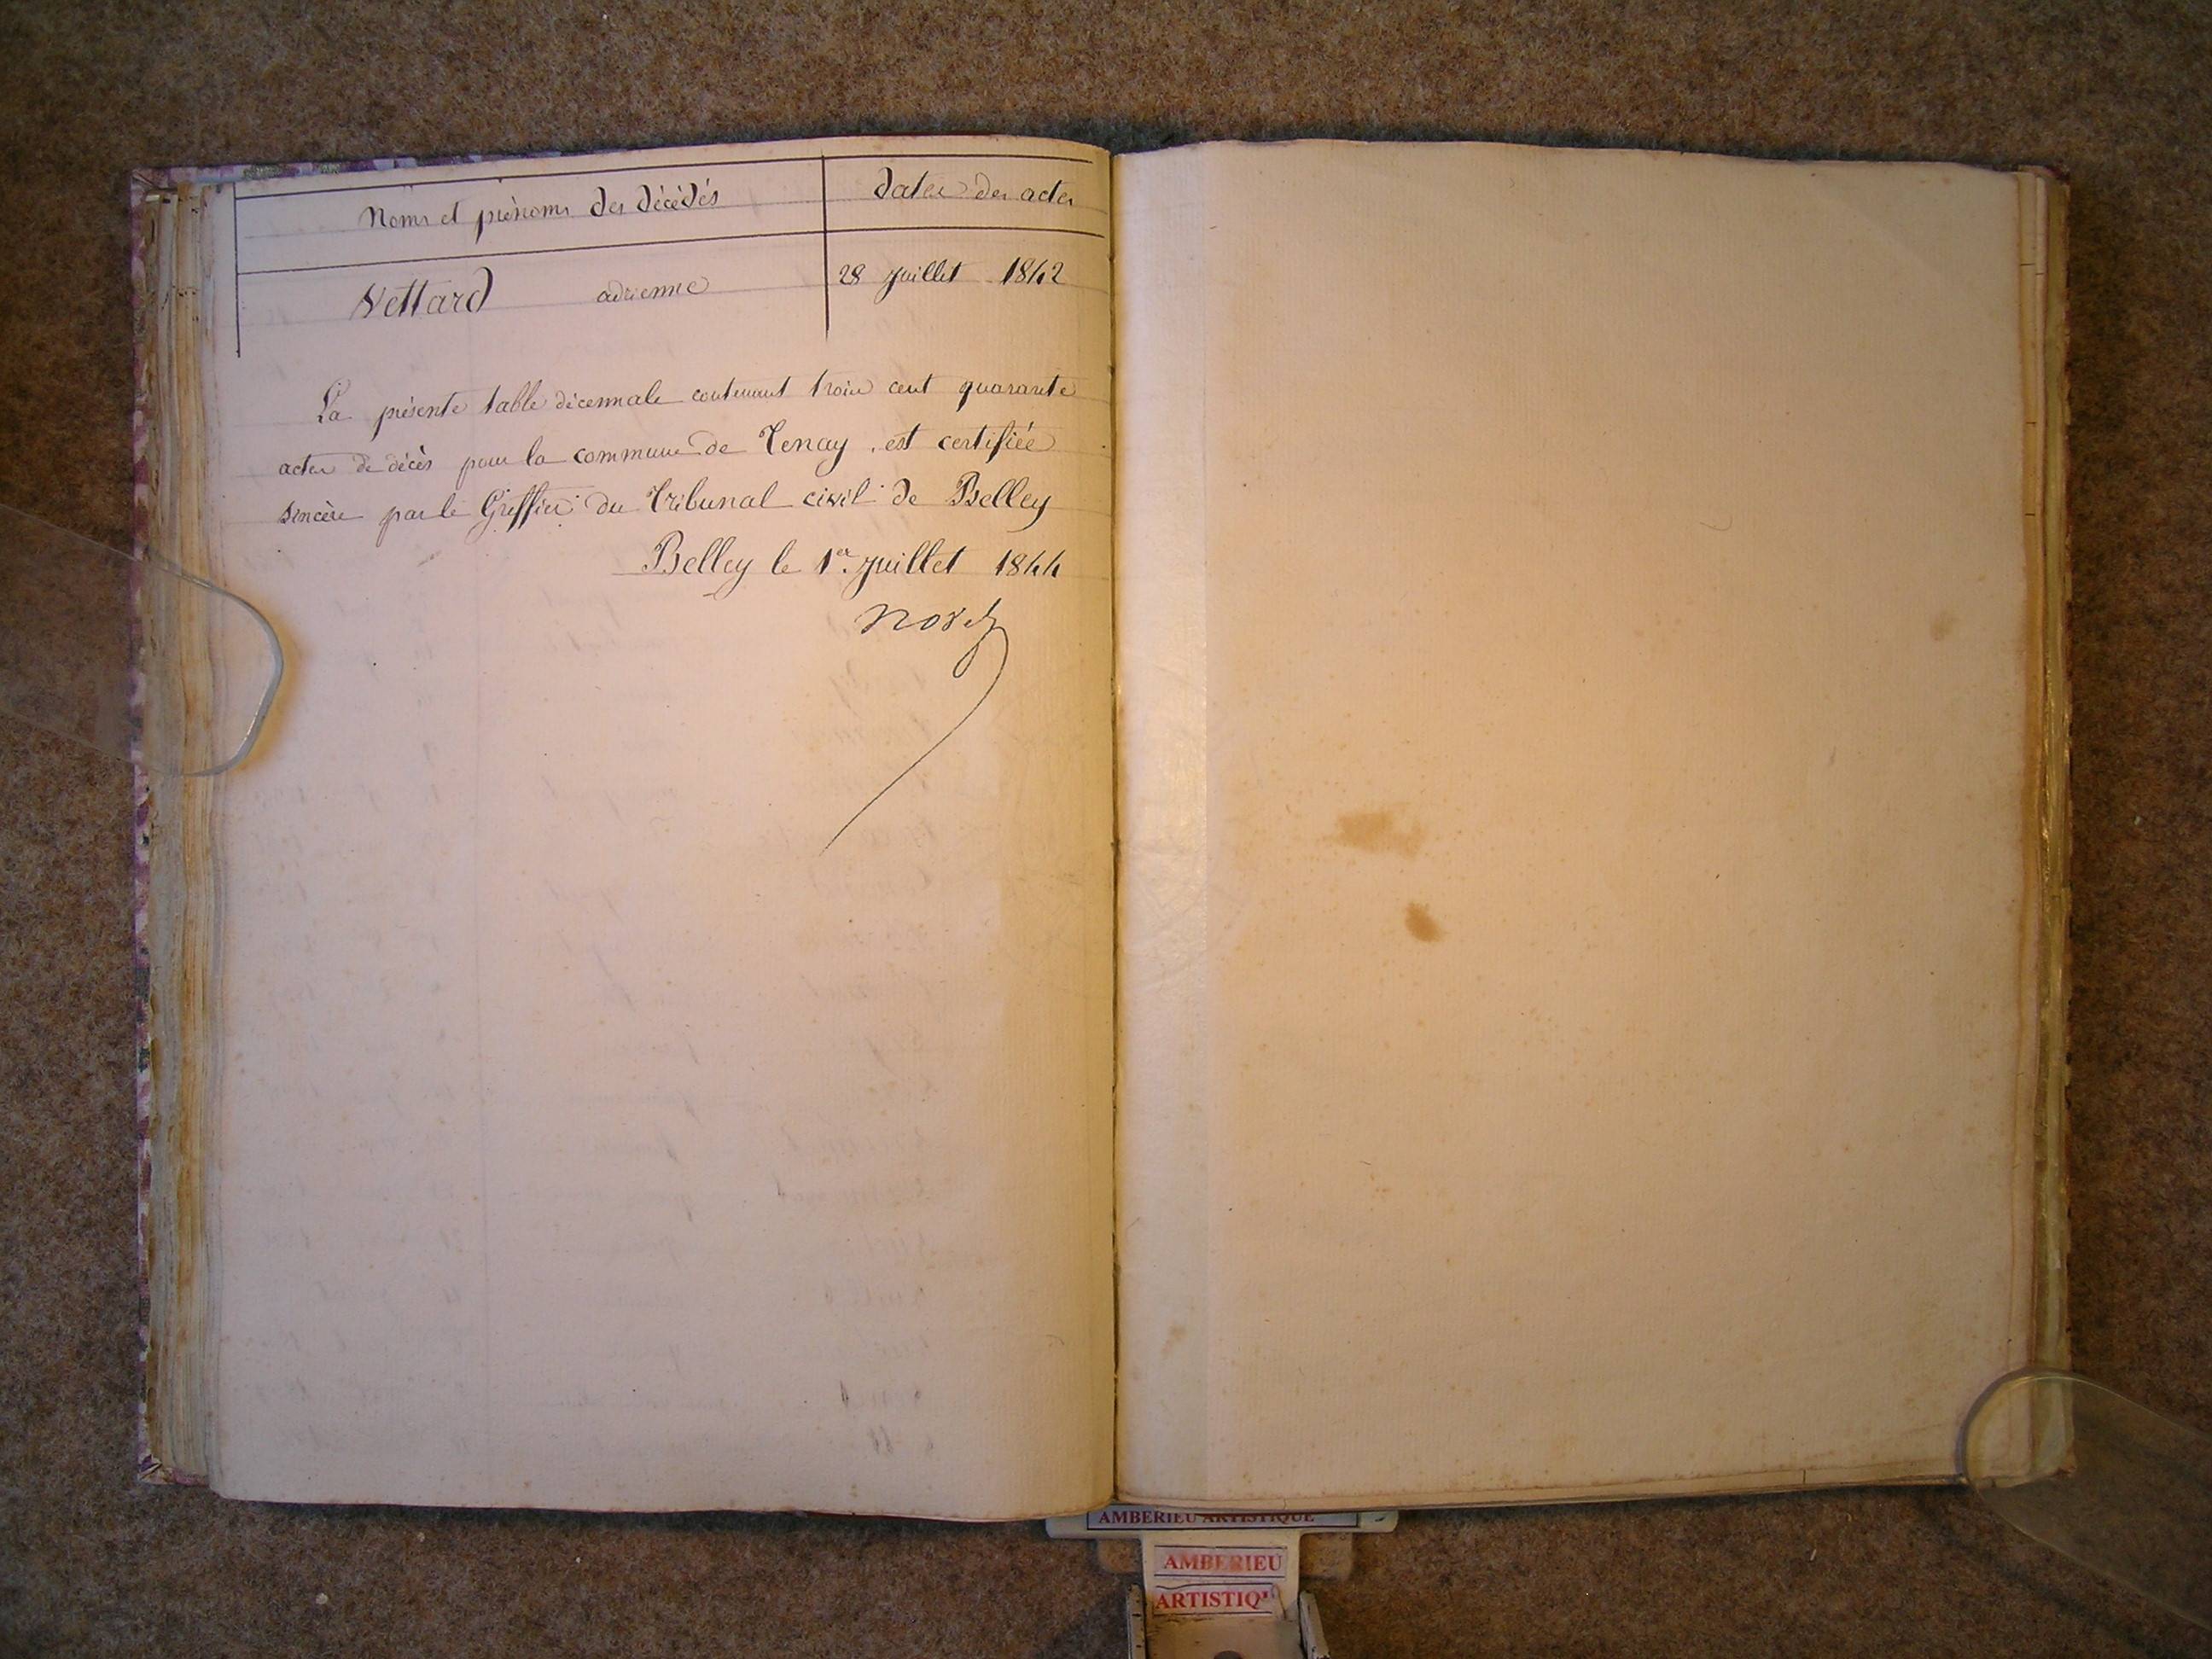 Noms et prénoms des décédés
dates des actes
Vettard adrienne
28 juillet 1842
La présente table décennale contenant trois cent quarante
actes de décès pour la commune de Tenay, est certifiée
sincère par le Greffier du Tribunal civil de Belley
Belley le 1er juillet 1844
AMBERIEU ARTISTIQUE
AMBERIEU
ARTISTIQ